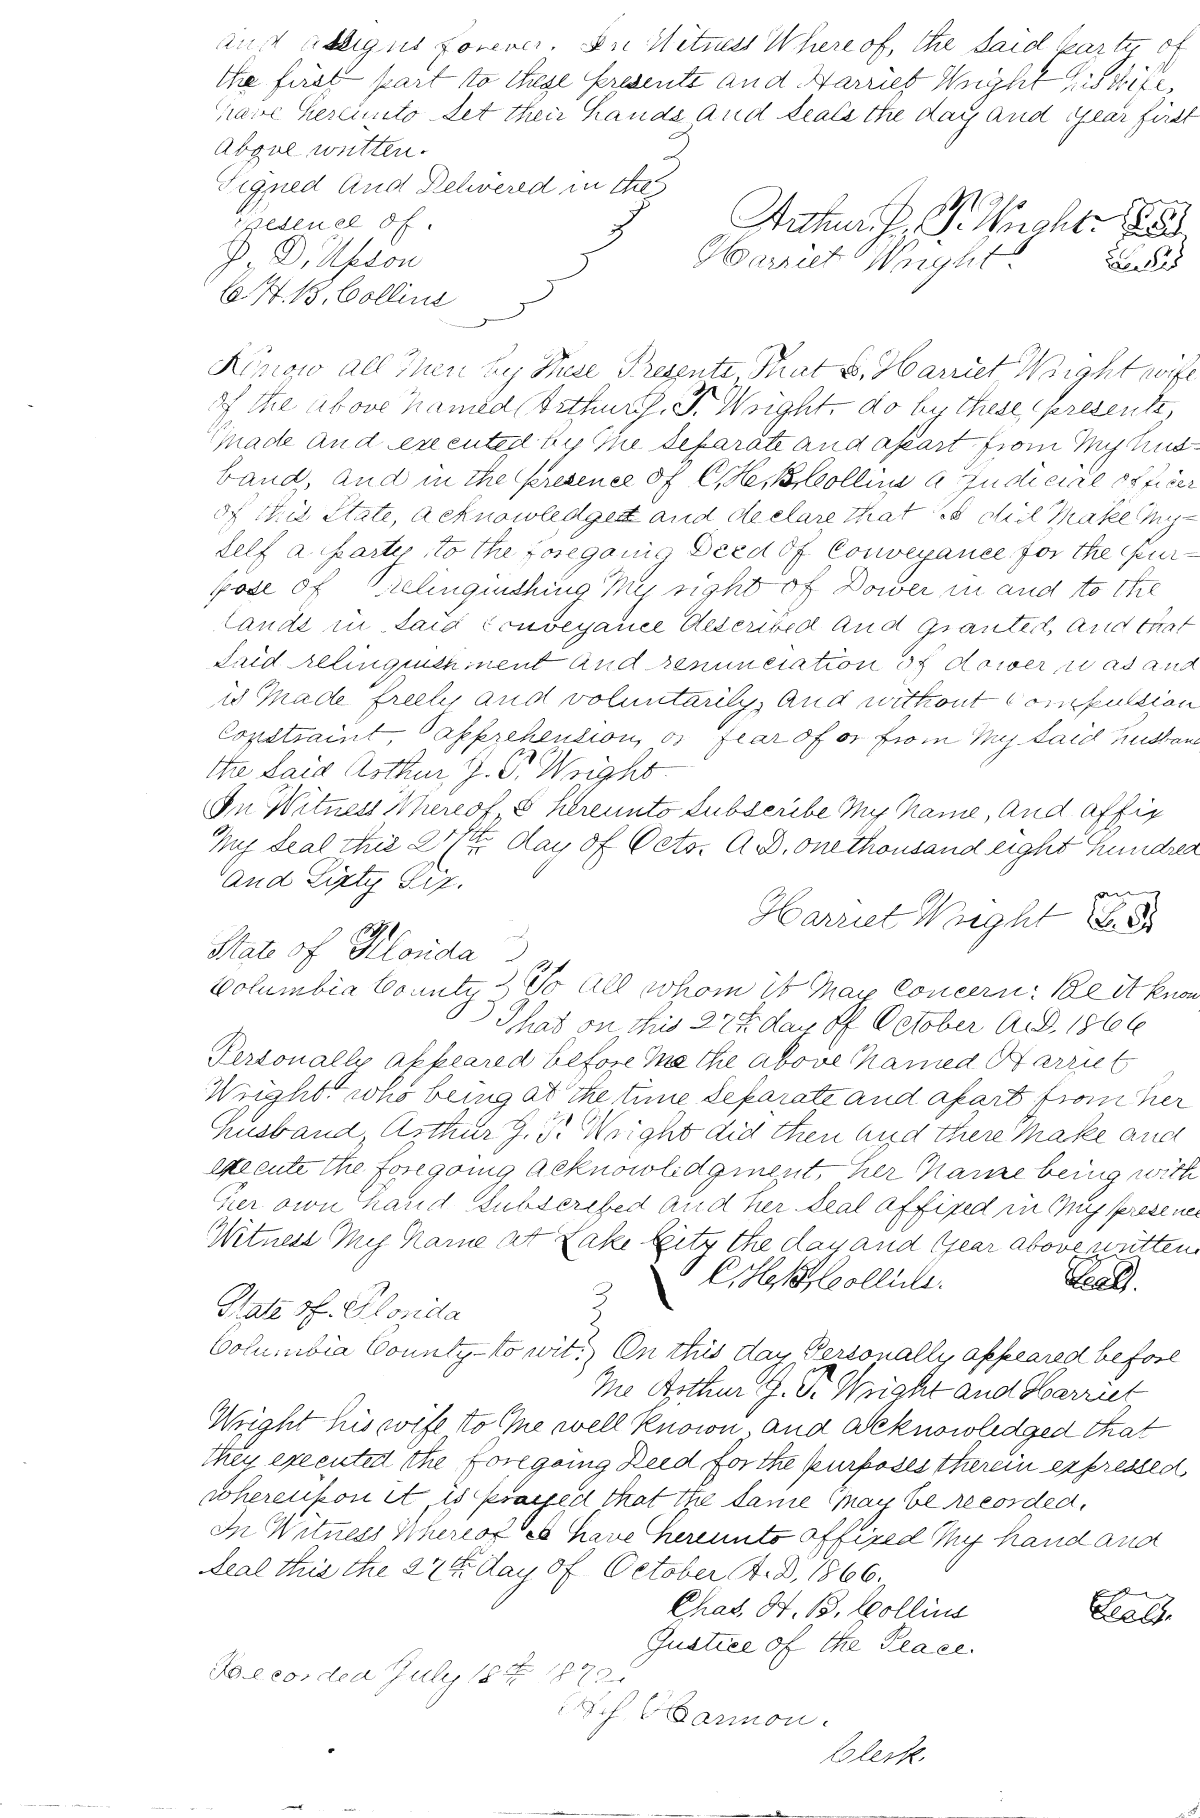 and assigns forever. In Witness Whereof, the said party of
the first part to these presents and Harriet Wright his wife,
have hereunto set their hands and seals the day and year first
above written.
Signed and Delivered in the
presence of.
J. D. Upson
C. H. B. Collins
Arthur J. T. Wright. L.S.
Harriet Wright. L.S.
Know all Men by These Presents, That I, Harriet Wright wife
of the above named Arthur J. T. Wright, do by these presents,
made and executed by me separate and apart from my hus=
band, and in the presence of C. H. B. Collins a judicial officer
of this State, acknowledged and declare that I did make my=
self a party to the foregoing Deed of Conveyance for the pur=
pose of relinquishing my right of Dower in and to the
lands in said conveyance described and granted, and that
said relinquishment and renunciation of dower was and
is made freely and voluntarily, and without compulsion
constraint, apprehension, or fear of or from my said husband
the said Arthur J. T. Wright
In Witness Whereof, I hereunto subscribe my name, and affix
my seal this 27th day of Octo. A.D. one thousand eight hundred
and Sixty Six.
Harriet Wright L.S.
State of Florida
Columbia County } To all whom it may concern: Be it know
That on this 27th day of October A.D. 1866
Personally appeared before me the above named Harriet
Wright who being at the time separate and apart from her
husband, Arthur J. T. Wright did then and there make and
execute the foregoing acknowledgment, her name being with
her own hand subscribed and her seal affixed in my presence
Witness my name at Lake City the day and year above written.
C. H. B. Collins. Seal.
State of Florida
Columbia County to wit: } On this day Personally appeared before
me Arthur J. T. Wright and Harriet
Wright his wife to me well known, and acknowledged that
they executed the foregoing Deed for the purposes therein expressed,
whereupon it is prayed that the same may be recorded.
In Witness Whereof I have hereunto affixed my hand and
seal this the 27th day of October A.D. 1866.
Chas. H. B. Collins Seal.
Justice of the Peace.
Recorded July 18th 1872.
Harmon.
Clerk.